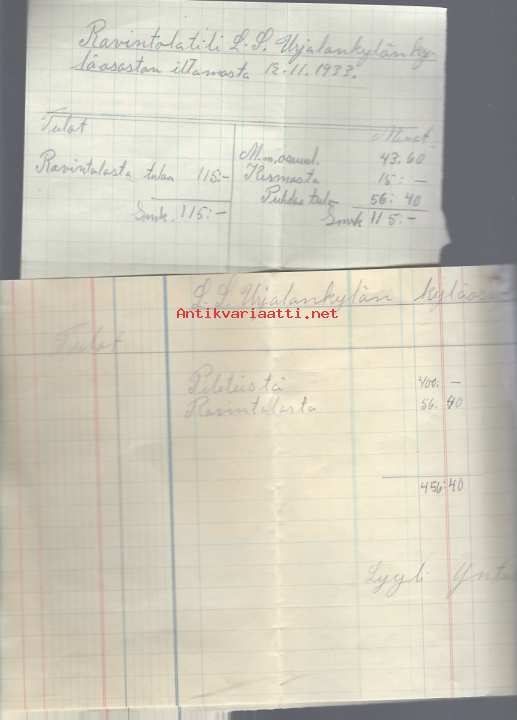 Ravintolatili L.S. Urjalankylän ky-
läosaston iltamasta 12.11.1933.
Tulot
Menot
Ravintolasta tuloa 115:-
Smk. 115:-
M.m. osuusl. 43.60
15: -
Puhdas tulo 56: 40
Smk 115:-
L.S. Urjalankylän kyläosa
Antikvariaatti.net
Tulot
Piletistä 400: -
Ravintolasta 56. 40
456:40
Lyyli